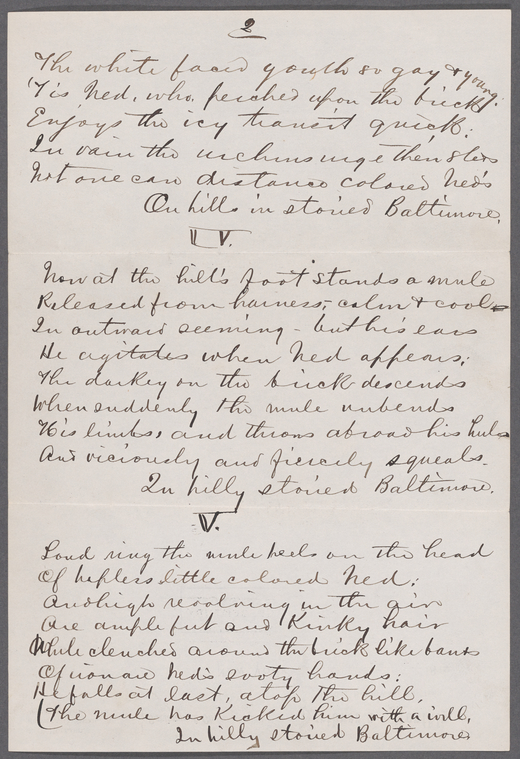 2
The white faced youth so gay & young.
'Tis Ned, who, perched upon the brick
Enjoys the icy transit quick;
In vain the urchins urge their sleds
Not one can distance colored Ned's
On hills in storied Baltimore.
IV.
Now at the hill's foot stands a mule
Released from harness, calm & cool
In outward seeming - but his ears
He agitates when Ned appears;
The darkey on the brick descends
When suddenly the mule unbends
His limbs, and throws abroad his heels
And viciously and fiercely squeals.
In hilly storied Baltimore.
V.
Loud ring the mule heels on the head
Of hapless little colored Ned;
And high revolving in the air
Are ample feet and Kinky hair
While clenched around the brick like bands
Of iron are Ned's sooty hands;
He falls at last, atop the hill,
(The mule has Kicked him with a will,
In hilly storied Baltimore